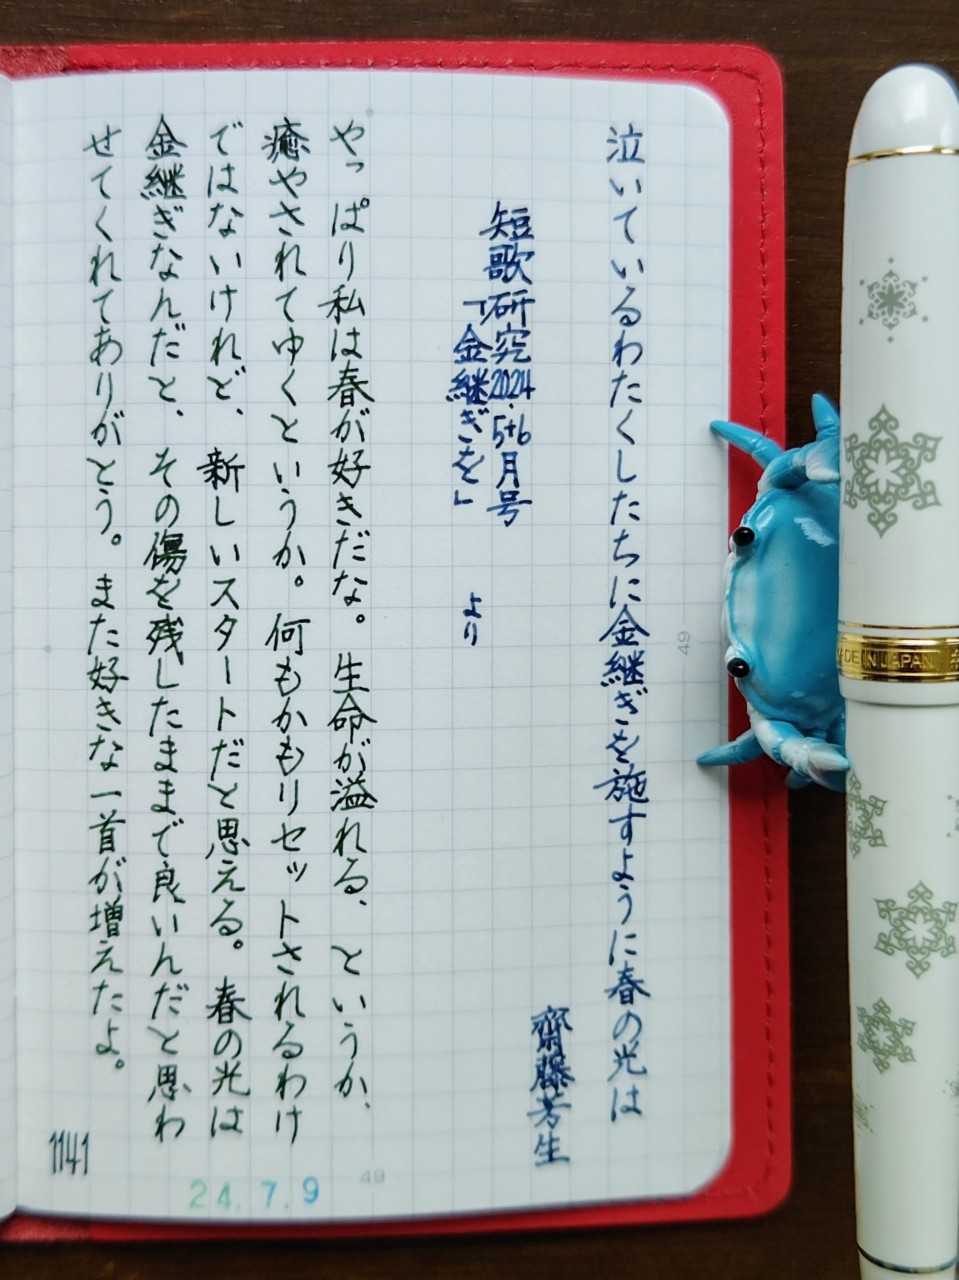 泣いているわたくしたちに金継ぎを施すように春の光は
齋藤芳生
短歌研究2024.5+6月号
「金継ぎを」 より
やっぱり私は春が好きだな。生命が溢れる、というか、
癒やされてゆくというか。何もかもリセットされるわけ
ではないけれど、新しいスタートだと思える。春の光は
金継ぎなんだと、その傷を残したままで良いんだと思わ
せてくれてありがとう。また好きな一首が増えたよ。
1141
24.7.9
49
49
MADE IN JAPAN